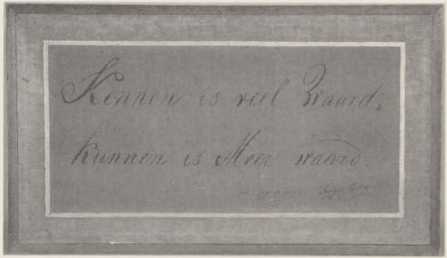 Kennen is veel Waard,
kunnen is Meer waard.